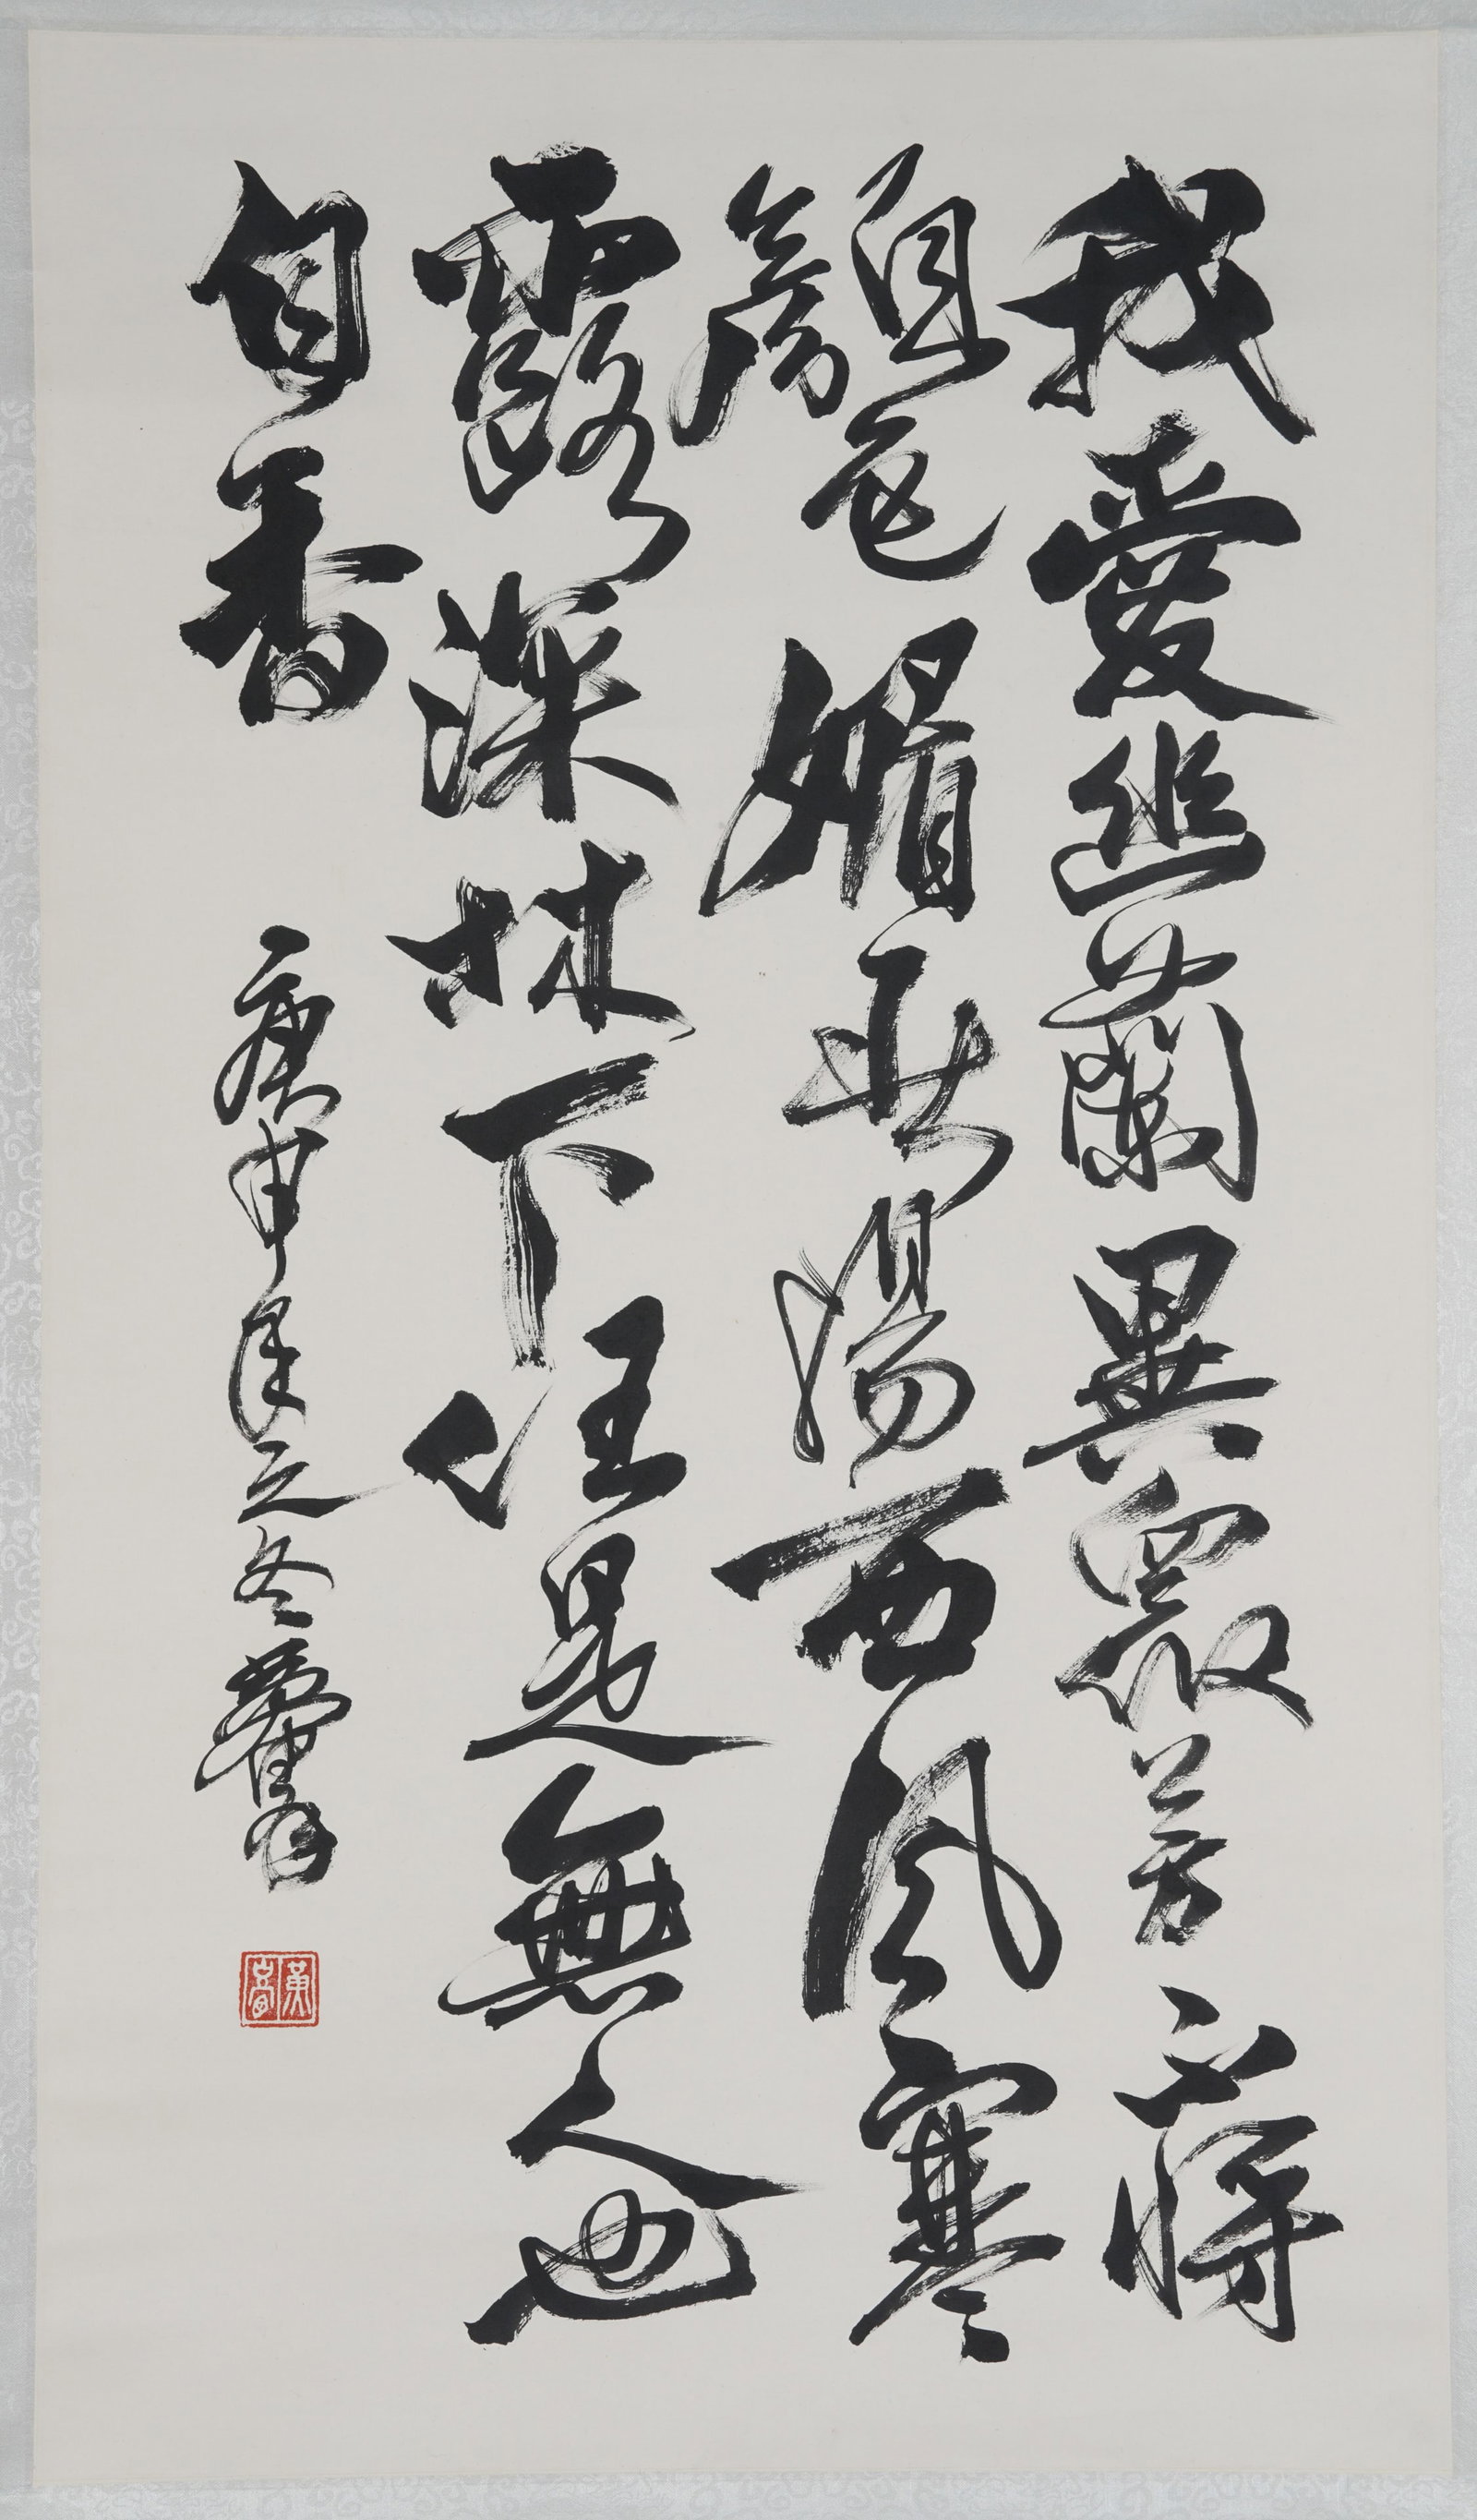 我愛幽蘭異眾芳不將
顏色媚春陽西風寒
露深林下任是無人也
自香
庚申年立冬